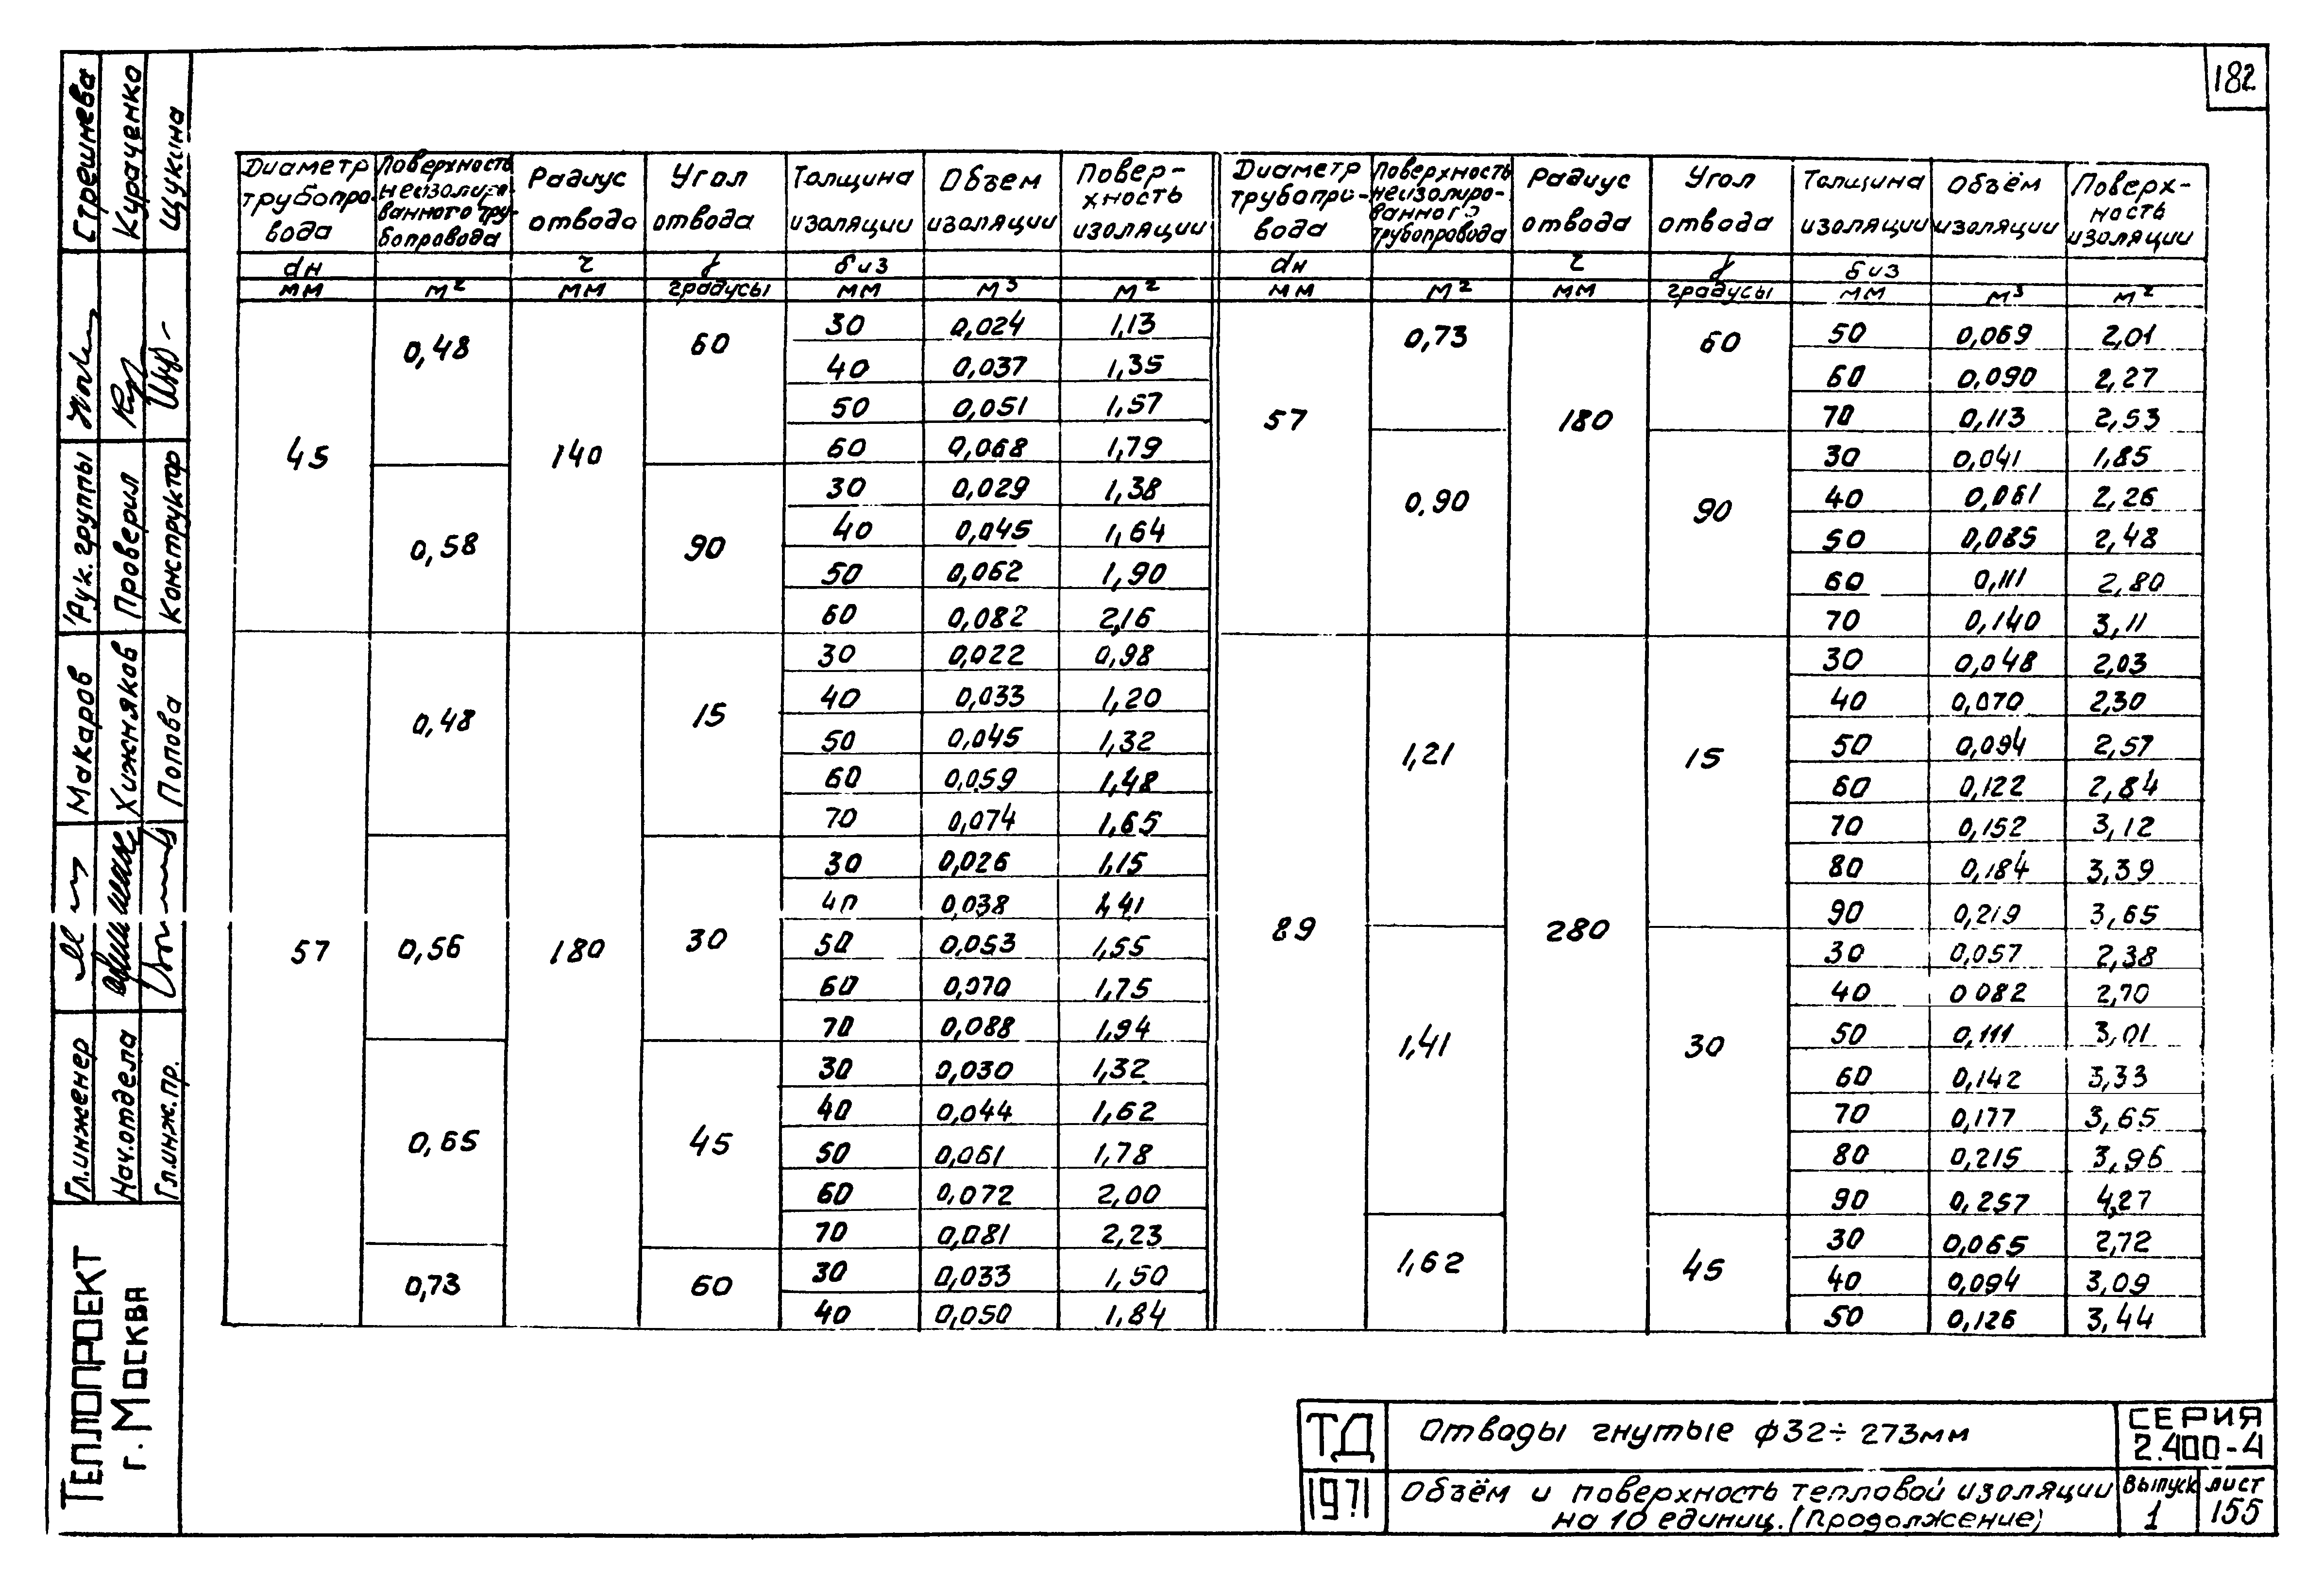 182
Стрешнева
Кураченко
Щукина
Рук. группы
Проверил
Конструктор
Макаров
Хижняков
Попова
Гл.инженер
Нач.отдела
Гл.инж.пр.
ТЕПЛОПРОЕКТ
г. МОСКВА
Диаметр трубопровода | Поверхность неизолированного трубопровода | Радиус отвода | Угол отвода | Толщина изоляции | Объем изоляции | Поверхность изоляции
dн | | r | γ | δиз
мм | м² | мм | градусы | мм | м³ | м²
45 | 0,48 | 140 | 60 | 30 | 0,024 | 1,13
40 | 0,037 | 1,35
50 | 0,051 | 1,57
60 | 0,068 | 1,79
0,58 | 90 | 30 | 0,029 | 1,38
40 | 0,045 | 1,64
50 | 0,062 | 1,90
60 | 0,082 | 2,16
57 | 0,48 | 180 | 15 | 30 | 0,022 | 0,98
40 | 0,033 | 1,20
50 | 0,045 | 1,32
60 | 0,059 | 1,48
70 | 0,074 | 1,65
0,56 | 30 | 30 | 0,026 | 1,15
40 | 0,038 | 1,41
50 | 0,053 | 1,55
60 | 0,070 | 1,75
70 | 0,088 | 1,94
0,65 | 45 | 30 | 0,030 | 1,32
40 | 0,044 | 1,62
50 | 0,061 | 1,78
60 | 0,072 | 2,00
70 | 0,081 | 2,23
0,73 | 60 | 30 | 0,033 | 1,50
40 | 0,050 | 1,84
Диаметр трубопровода | Поверхность неизолированного трубопровода | Радиус отвода | Угол отвода | Толщина изоляции | Объём изоляции | Поверхность изоляции
dн | | r | γ | δиз
мм | м² | мм | градусы | мм | м³ | м²
57 | 0,73 | 180 | 60 | 50 | 0,069 | 2,01
60 | 0,090 | 2,27
70 | 0,113 | 2,53
0,90 | 90 | 30 | 0,041 | 1,85
40 | 0,061 | 2,26
50 | 0,085 | 2,48
60 | 0,111 | 2,80
70 | 0,140 | 3,11
89 | 1,21 | 280 | 15 | 30 | 0,048 | 2,03
40 | 0,070 | 2,30
50 | 0,094 | 2,57
60 | 0,122 | 2,84
70 | 0,152 | 3,12
80 | 0,184 | 3,39
90 | 0,219 | 3,65
1,41 | 30 | 30 | 0,057 | 2,38
40 | 0 082 | 2,70
50 | 0,111 | 3,01
60 | 0,142 | 3,33
70 | 0,177 | 3,65
80 | 0,215 | 3,96
90 | 0,257 | 4,27
1,62 | 45 | 30 | 0,065 | 2,72
40 | 0,094 | 3,09
50 | 0,126 | 3,44
ТД
1971
Отводы гнутые ф32÷273мм
Объём и поверхность тепловой изоляции
на 10 единиц. (Продолжение)
СЕРИЯ
2.400-4
Выпуск
1
лист
155